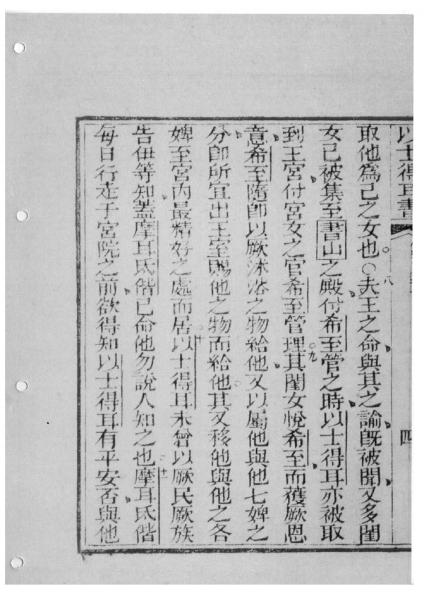 以士得耳書
四
取他爲己之女也○夫王之命與其之諭旣被聞又多閨
八
女已被集至書山之殿付希至管之時以士得耳亦被取
到王宮付宮女之官希至管理其閨女悅希至而獲厥恩
九
意希至隨卽以厥沐浴之物給他又以屬他與他七婢之
分卽所宜出王室賜他之物而給他其又移他與他之各
婢至宮內最精好之處而居以士得耳未曾以厥民厥族
十
告伊等知蓋摩耳氐偕已命他勿說人知之也摩耳氐偕
十一
每日行走于宮院之前欲得知以士得耳有平安否與他